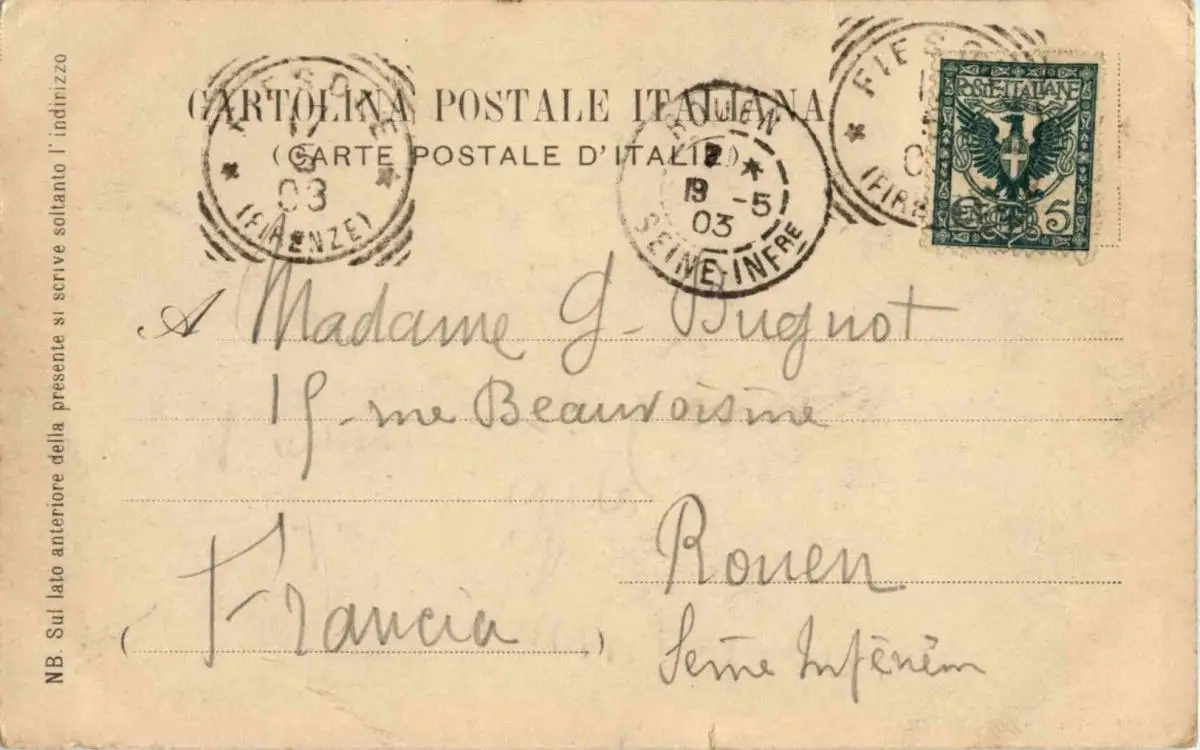 CARTOLINA POSTALE ITALIANA
(CARTE POSTALE D'ITALIE)
FIESOLE
17
5
03
(FIRENZE)
ROUEN
19 -5
03
SEINE-INFRE
FIESO
(FIR
POSTE·ITALIANE
CENT 5
A Madame G. Bugnot
15 - rue Beauvoisine
Rouen
(Francia)
Seine Inférém
NB. Sul lato anteriore della presente si scrive soltanto l'indirizzo